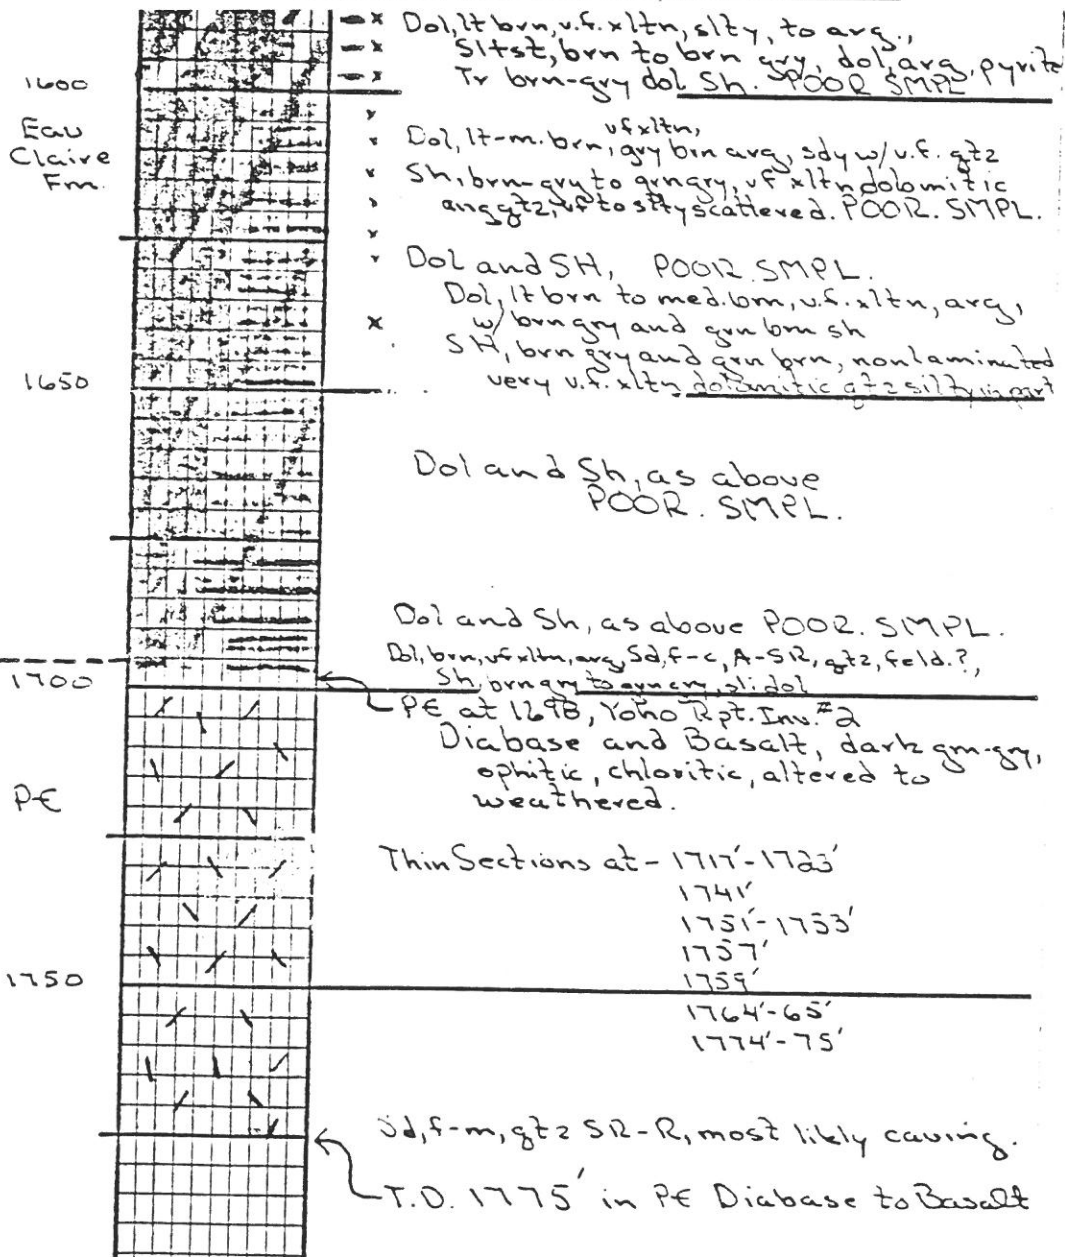 Dol, lt brn, v.f. xltn, slty, to arg.,
Sltst, brn to brn gry, dol, arg, pyrite
Tr brn-gry dol Sh. POOR SMPL
1600
Eau
Claire
Fm.
vfxltn,
Dol, lt-m. brn, gry brn arg, sdy w/ v.f. qtz
Sh, brn-gry to grngry, vf xltn dolomitic
ang qtz, vf to slty scattered. POOR. SMPL.
Dol and SH, POOR SMPL.
Dol, lt brn to med. brn, v.f. xltn, arg,
w/ brn gry and grn brn sh
SH, brn gry and grn brn, nonlaminated
1650
very v.f. xltn dolomitic qtz silty in part
Dol and Sh, as above
POOR. SMPL.
Dol and Sh, as above POOR. SMPL.
Dol, brn, vf xltn, arg, Sd, f-c, A-SR, qtz, feld.?,
1700
Sh, brn gry to grn gry, sli dol
P€ at 1698, Yoho Rpt. Inv. #2
Diabase and Basalt, dark grn-gry,
ophitic, chloritic, altered to
weathered.
P€
Thin Sections at - 1717'-1723'
1741'
1751'-1753'
1757'
1750
1759'
1764'-65'
1774'-75'
Sd, f-m, qtz SR-R, most likely caving.
T.D. 1775' in P€ Diabase to Basalt